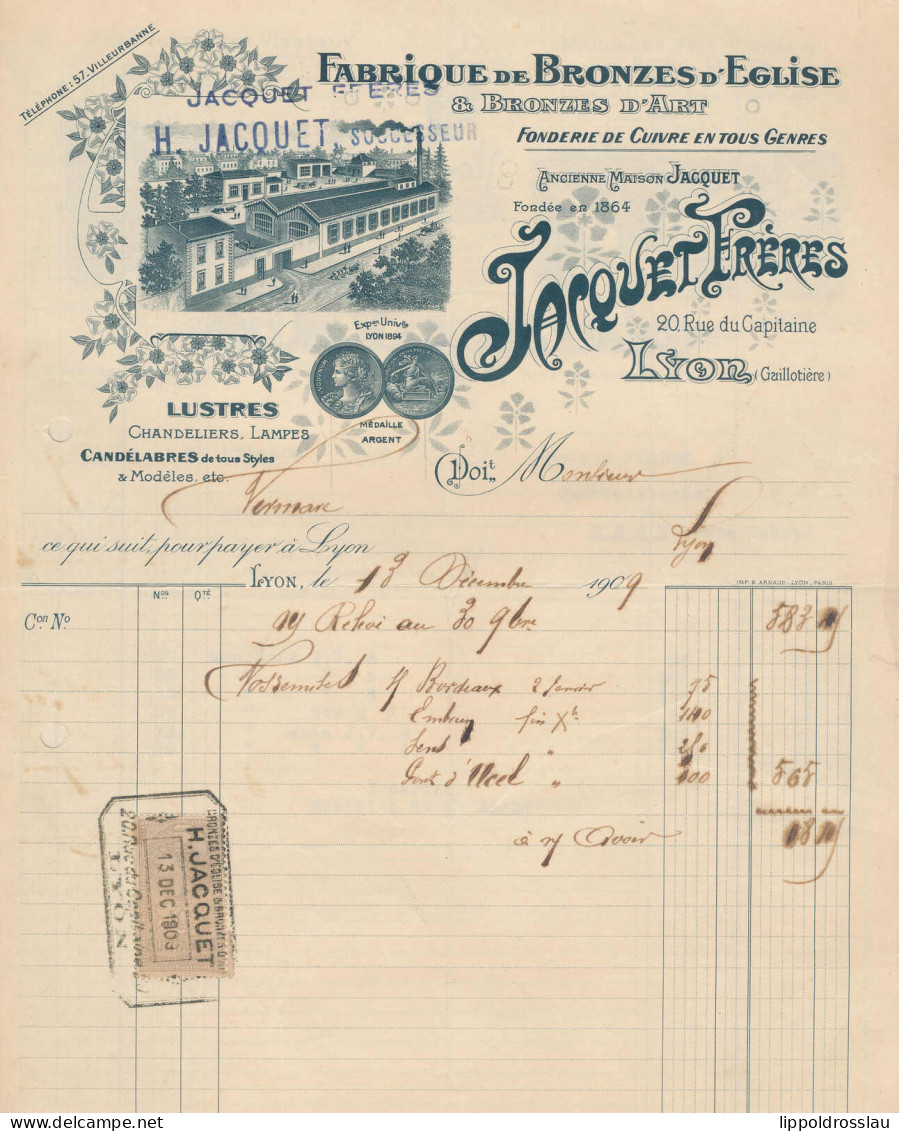 TÉLÉPHONE: 57. VILLEURBANNE
FABRIQUE DE BRONZES D'EGLISE
& BRONZES D'ART
JACQUET FRÈRES
H. JACQUET, SUCCESSEUR
FONDERIE DE CUIVRE EN TOUS GENRES
ANCIENNE MAISON JACQUET
Fondée en 1864
JACQUET FRÈRES
20, Rue du Capitaine
LYON (Guillotière)
Expon Univlle
LYON 1894
MÉDAILLE
ARGENT
LUSTRES
CHANDELIERS, LAMPES
CANDÉLABRES de tous Styles
& Modèles, etc.
Doit Monsieur
Vermare
Lyon
ce qui suit, pour payer à Lyon
LYON, le 13 Décembre 1909
IMP. B. ARNAUD - LYON, PARIS
Nos QTÉ
Con No
Relevé au 30 9bre 583
Bordeaux 2 Janvier 95
Embrun fin Xbre
Sens "
Pont d' " 565
à Avoir 18
BRONZES D'EGLISE & BRONZES D'ART
H. JACQUET
13 DEC 1909
20, Rue du Capitaine
LYON
lippoldrosslau